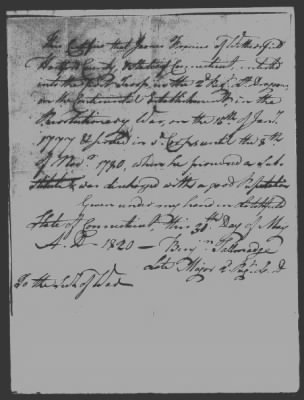 This Certifies that James Francis of Wethersfield
Hartford County & State of Connecticut, enlisted
into the first Troop, in the 2d Regt Lt Dragoons,
on the Continental Establishment, in the
Revolutionary War, on the 15th of Jany
1777 & served in sd Corps until the 8th
of Novr 1780, when he procured a Sub-
stitute & was discharged with a good Reputation
Given under my hand in Litchfield
State of Connecticut, this 30th Day of May
A.D. 1820 — Benjn Tallmadge
Late Major 2 Regt L. D
To the Sec. of War